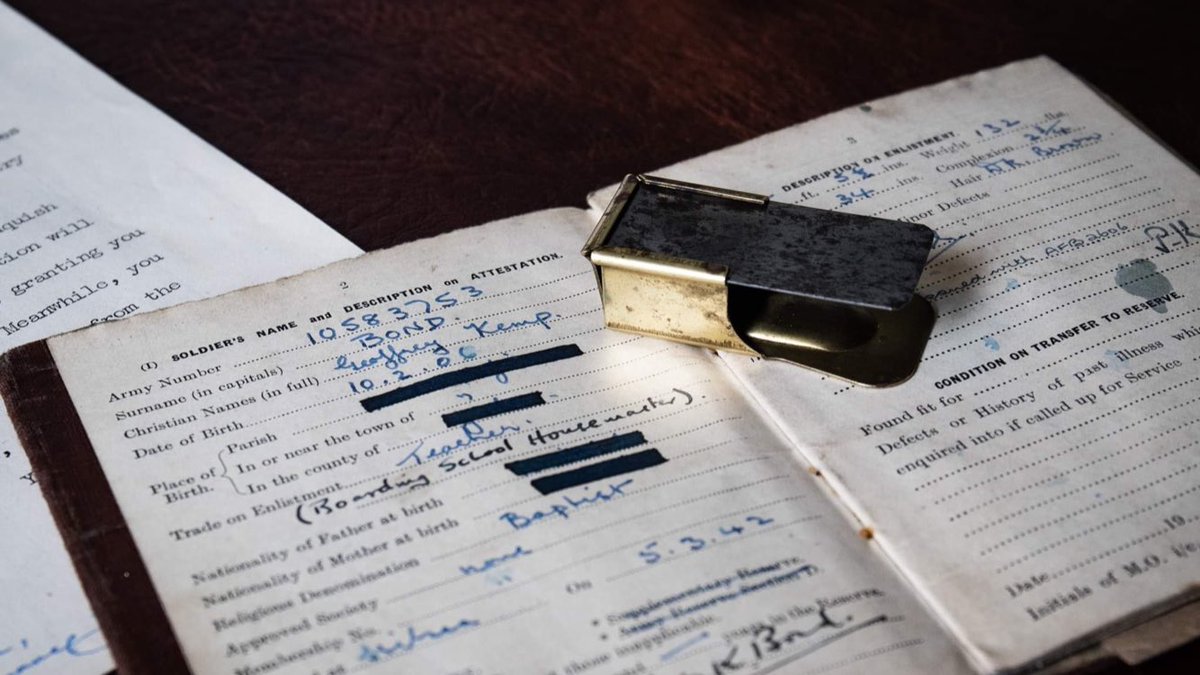 ry
quish
tion will
granting you
Meanwhile, you
from the
2
(I) SOLDIER'S NAME and DESCRIPTION on ATTESTATION.
Army Number 10583753
Surname (in capitals) BOND.
Christian Names (in full) Geoffrey Kemp.
Date of Birth 10.2.06
Place of Birth.
Parish
In or near the town of
In the county of
Trade on Enlistment Teacher.
(Boarding School Housemaster).
Nationality of Father at birth
Nationality of Mother at birth
Religious Denomination Baptist
Approved Society none
Membership No.
On 5.3.42
Supplementary Reserve.
Army Reserve Section
inapplicable.
years in the Reserve
K Bond.
3
DESCRIPTION ON ENLISTMENT.
ft. ins. Weight 132 lbs.
34 ins. Complexion
Hair DK. Brown
Minor Defects
AFB 2606
CONDITION ON TRANSFER TO RESERVE
Found fit for
Defects or History of past illness
enquired into if called up for Service
Date 19
Initials of M.O. i/c